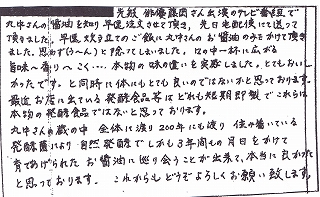 先般 俳優藤岡さん出演のテレビ番組で
丸中さんの醤油を知り早速注文させて頂き、先日宅配便にて送って
頂きました。早速炊き立てのご飯に丸中さんのお醤油のみをかけて頂き
ました。思わず(う〜ん)と唸ってしまいました。口の中一杯に広がる
旨味へ香りへこく‥‥ 本物の味の違いを実感しました。とてもおいし
かったです。と同時に体にもとても良いのではないかと思っております。
最近お店に出ている発酵食品等はどれも短期即製でこれらは
本物の発酵食品ではないと思っております。
丸中さんの蔵の中 全体に渡り200年にも渡り 住み着いている
発酵菌により自然発酵でしかも3年間もの月日をかけて
育てあげられた お醤油に巡り会うことが出来て、本当に良かった
と思っております。これからもどうぞよろしくお願い致します。